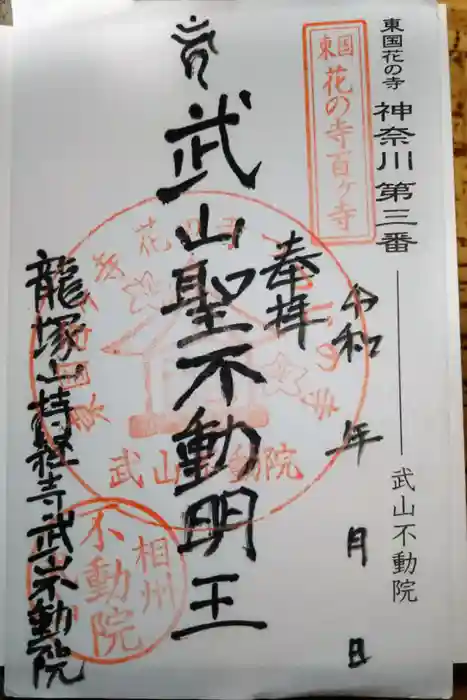 東国花の寺 神奈川 第三番 武山不動院
東国
花の寺百ヶ寺
令和 年 月 日
奉拝
武山聖不動明王
武山不動院
相州
不動院
龍塚山持経寺武山不動院